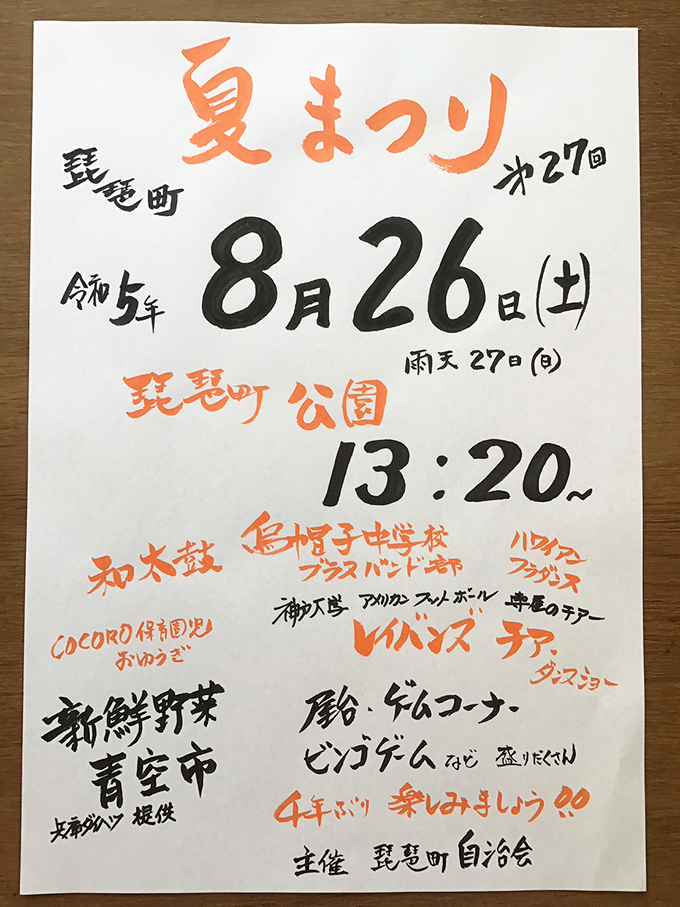 夏まつり
琵琶町
第27回
令和5年 8月26日(土)
雨天 27日(日)
琵琶町 公園
13:20~
和太鼓
烏帽子中学校
ブラスバンド部
ハワイアン
フラダンス
COCORO保育園児
おゆうぎ
神戸大学 アメリカンフットボール 専属のチアー
レイバンズ チア.
ダンスショー
新鮮野菜
青空市
兵庫ダイハツ 提供
屋台・ゲームコーナー
ビンゴゲーム など 盛りだくさん
4年ぶり 楽しみましょう!!
主催 琵琶町自治会